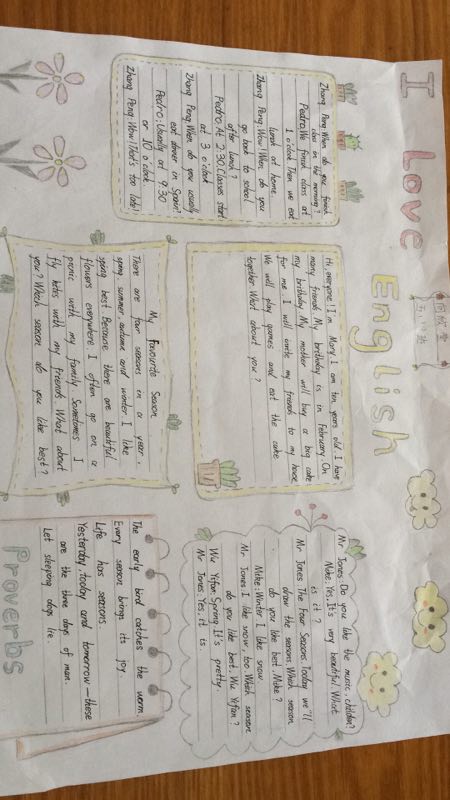 I Love English
Zhang Peng: When do you finish
class in the morning?
Pedro: We finish class at
1 o'clock. Then we eat
lunch at home.
Zhang Peng: Wow! When do you
go back to school
after lunch?
Pedro: At 2:30. Classes start
at 3 o'clock
Zhang Peng: When do you usually
eat dinner in Spain?
Pedro: Usually at 9:30
or 10 o'clock
Zhang Peng: Wow! That's too late!
Hi, everyone! I'm Mary. I am ten years old. I have
many friends. My birthday is in February. On
my birthday, My mother will buy a big cake
for me. I will invite my friends to my house
We will play games and eat the cake
together. What about you?
Mr Jones: Do you like the music, children?
Mike: Yes. It's very beautiful. What
is it?
Mr Jones: The Four Seasons. Today we'll
draw the seasons. Which season
do you like best, Mike?
Mike: Winter. I like snow.
Mr Jones: I like snow, too. Which season
do you like best, Wu Yifan?
Wu Yifan: Spring. It's pretty.
Mr Jones: Yes, it is.
My Favourite Season
There are four seasons in a year,
spring summer, autumn and winter. I like
spring best. Because there are beautiful
flowers everywhere. I often go on a
picnic with my family. Sometimes I
fly kites with my friends. What about
you? Which season do you like best?
The early bird catches the worm.
Every season brings its joy.
Life has seasons.
Yesterday, today and tomorrow — these
are the three days of man.
Let sleeping dogs lie.
Proverbs